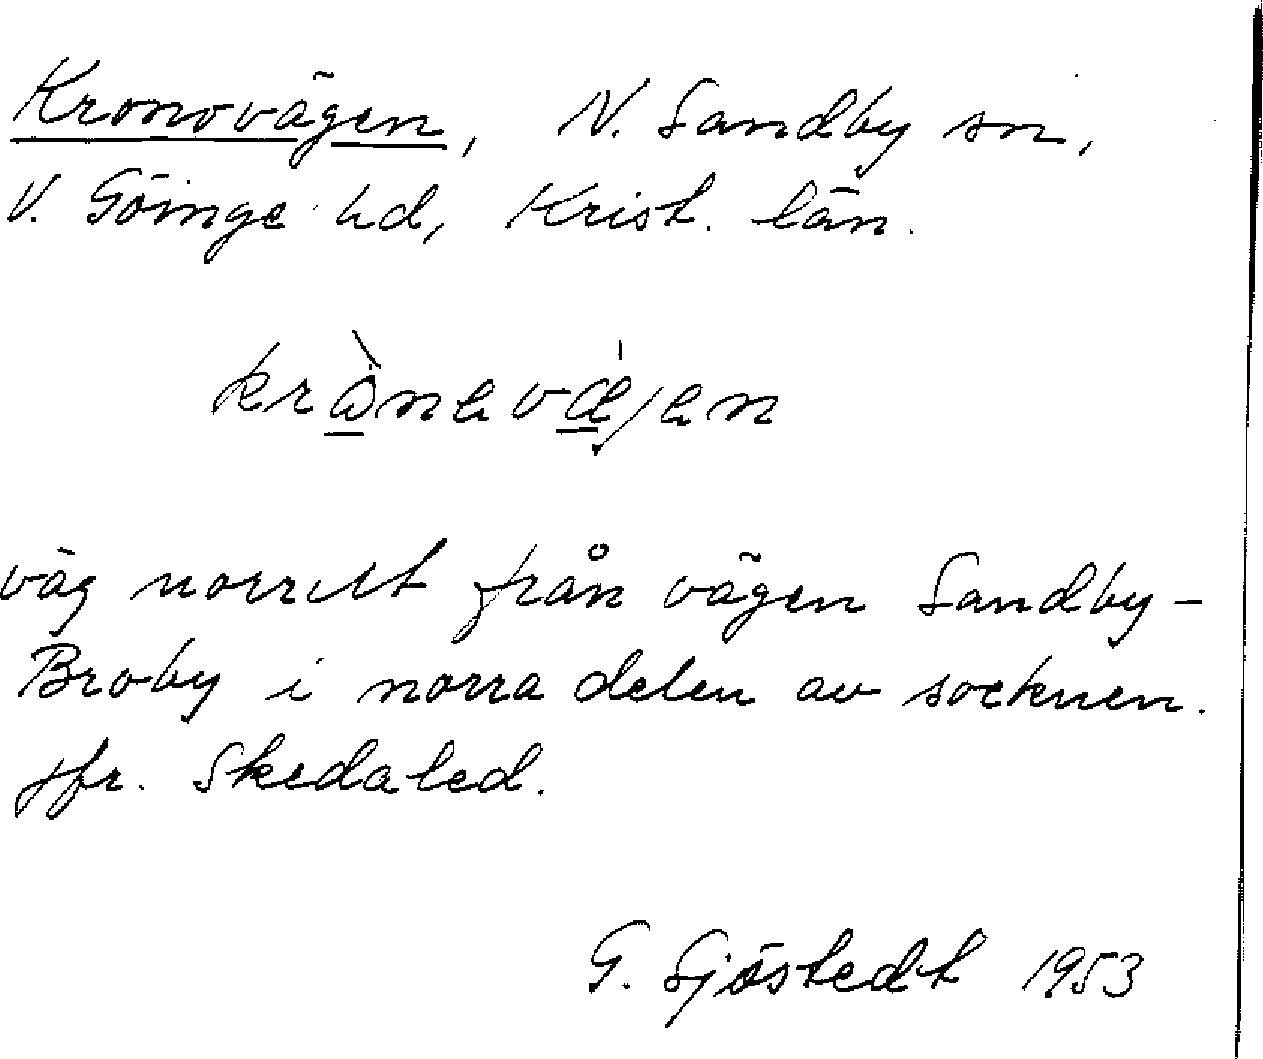 Kronovägen, N. Sandby sn,
V. Göinge hd, Krist. län.
krò̱nəvǽ̱jən
väg norrut från vägen Sandby-
Broby i norra delen av socknen.
Jfr. Skedaled.
G. Sjöstedt 1953